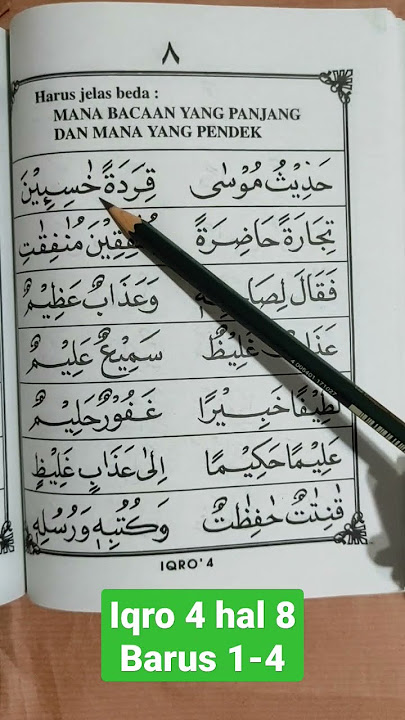 ٨
Harus jelas beda :
MANA BACAAN YANG PANJANG
DAN MANA YANG PENDEK
حَدِيْثُ مُوْسٰى قِرَدَةً خٰسِـِٕيْنَ
تِجَارَةً حَاضِرَةً مُنْفِقِيْنَ مُنٰفِقٰتِ
فَقَالَ وَعَذَابٌ عَظِيْمٌ
غَلِيْظٌ سَمِيْعٌ عَلِيْمٌ
لَطِيْفًا خَبِيْرًا غَفُوْرٌ حَلِيْمٌ
عَلِيْمًا حَكِيْمًا اِلٰى عَذَابٍ غَلِيْظٍ
قٰنِتٰتٌ حٰفِظٰتٌ وَكُتُبِهٖ وَرُسُلِهٖ
IQRO' 4
Iqro 4 hal 8
Barus 1-4